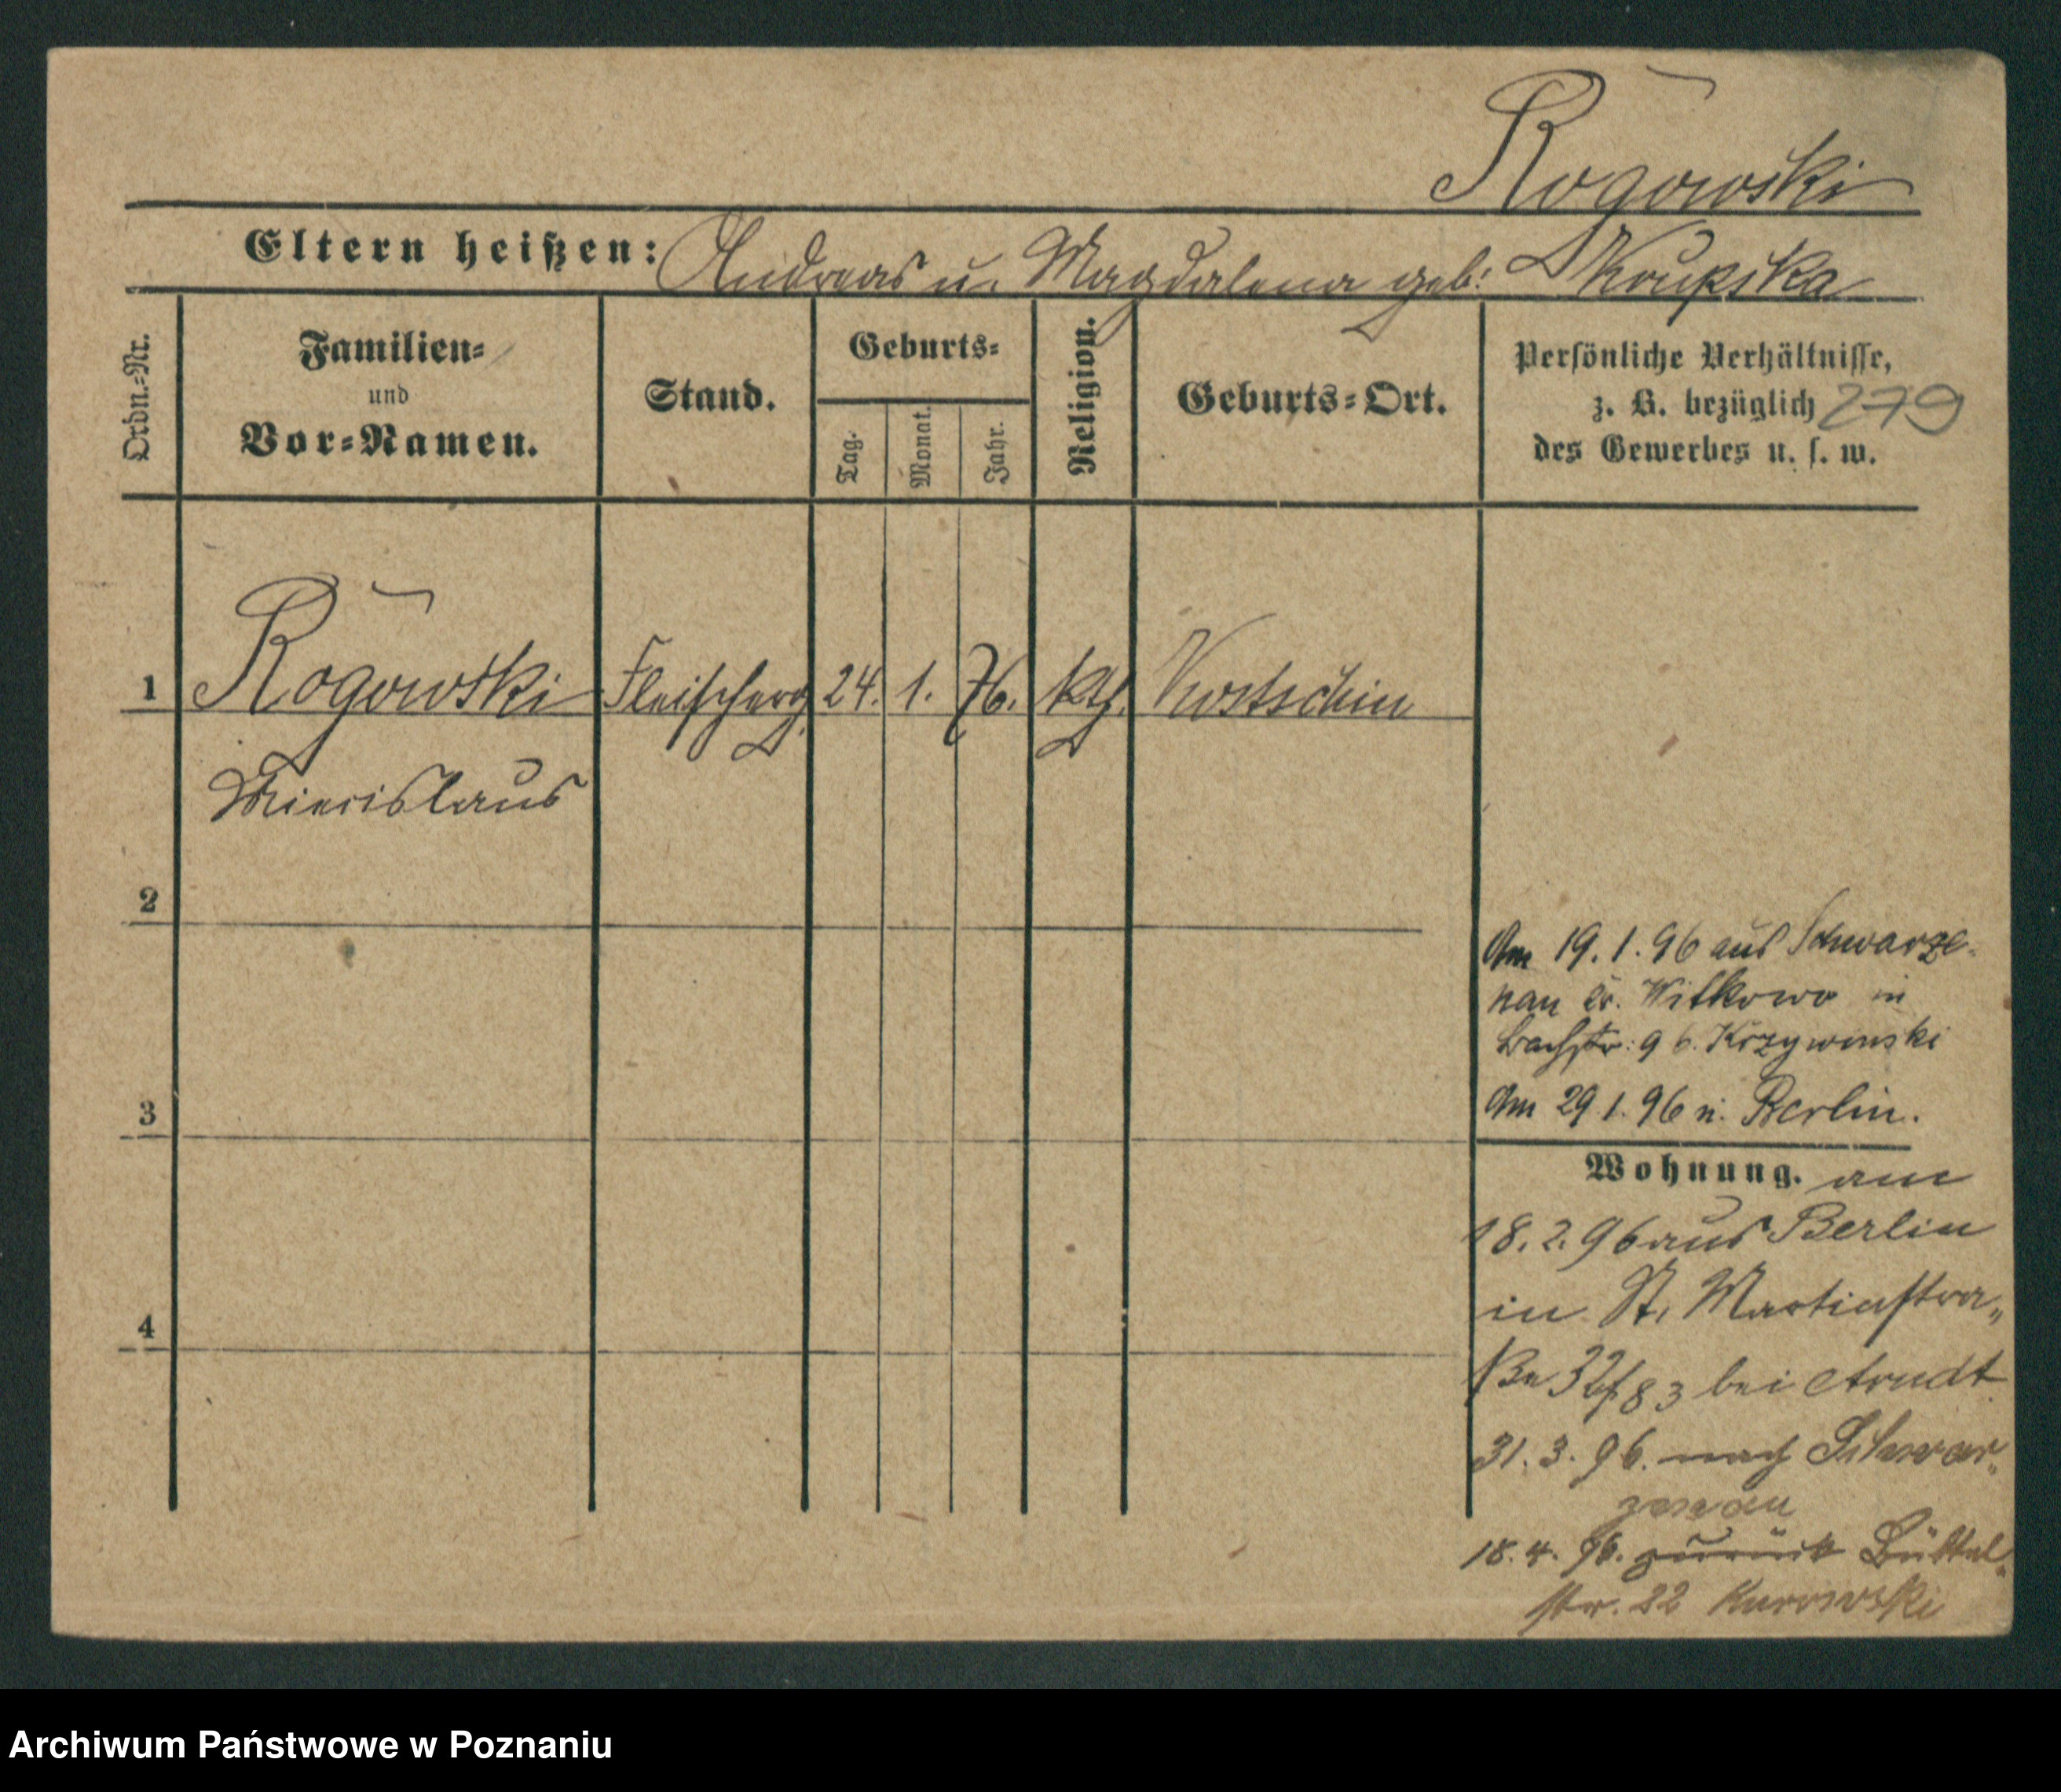 Rogowski
Eltern heißen: Andreas u. Magdalena geb: Krupska
Ordn.-Nr.
Familien-
und
Vor-Namen.
Stand.
Geburts-
Tag.
Monat.
Jahr.
Religion.
Geburts-Ort.
Persönliche Verhältnisse,
z. B. bezüglich 279
des Gewerbes u. s. w.
1 Rogowski Fleischerg. 24. 1. 76. kth. Kostschin
Miecislaus
2
Am 19.1.96 aus Schwarze-
nau Kr. Witkowo in
Bachstr: 9 b. Krzywinski
3
Am 29.1.96 n. Berlin.
Wohnung. am
18.2.96 aus Berlin
in St. Martinstra„
4
ße 32/83 bei Arndt
31.3.96. nach Schwar„
zenau
18.4.96. zurück Büttel„
str. 22 Kurowski
Archiwum Państwowe w Poznaniu